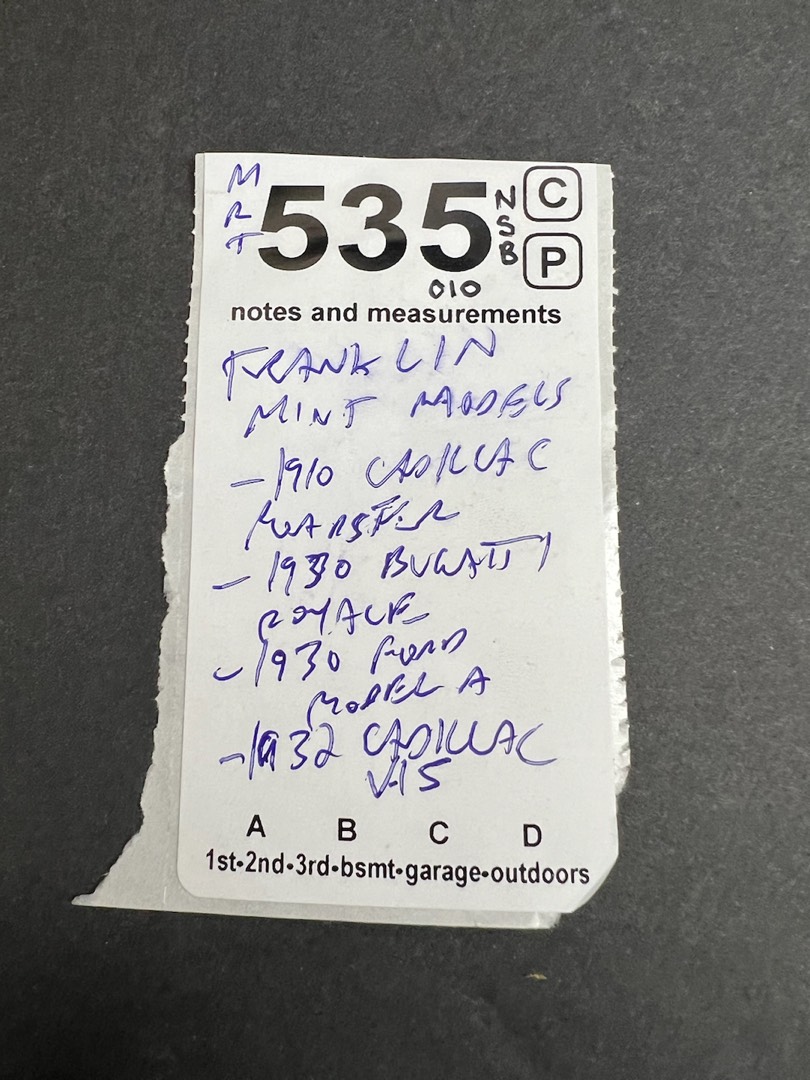 MRT 535 NSB C
P
010
notes and measurements
FRANKLIN
MINT MODELS
- 1910 CADILLAC
- 1930 BUGATTI
ROYALE
- 1930 FORD
MODEL A
- 1932 CADILLAC
V15
A B C D
1st•2nd•3rd•bsmt•garage•outdoors